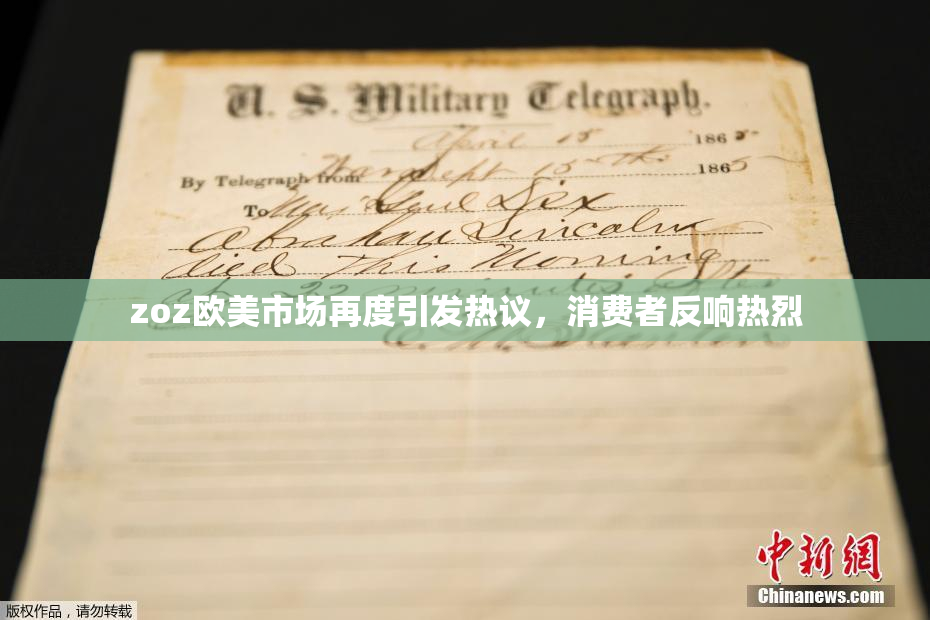 U. S. Military Telegraph.
April 15 1865
By Telegraph from War Dept 15th 1865
To Maj Genl Dix
Abraham Lincoln
died This Morning
at 22 minutes after
E. M. Stanton
zoz欧美市场再度引发热议，消费者反响热烈
中新网
Chinanews.com
版权作品，请勿转载